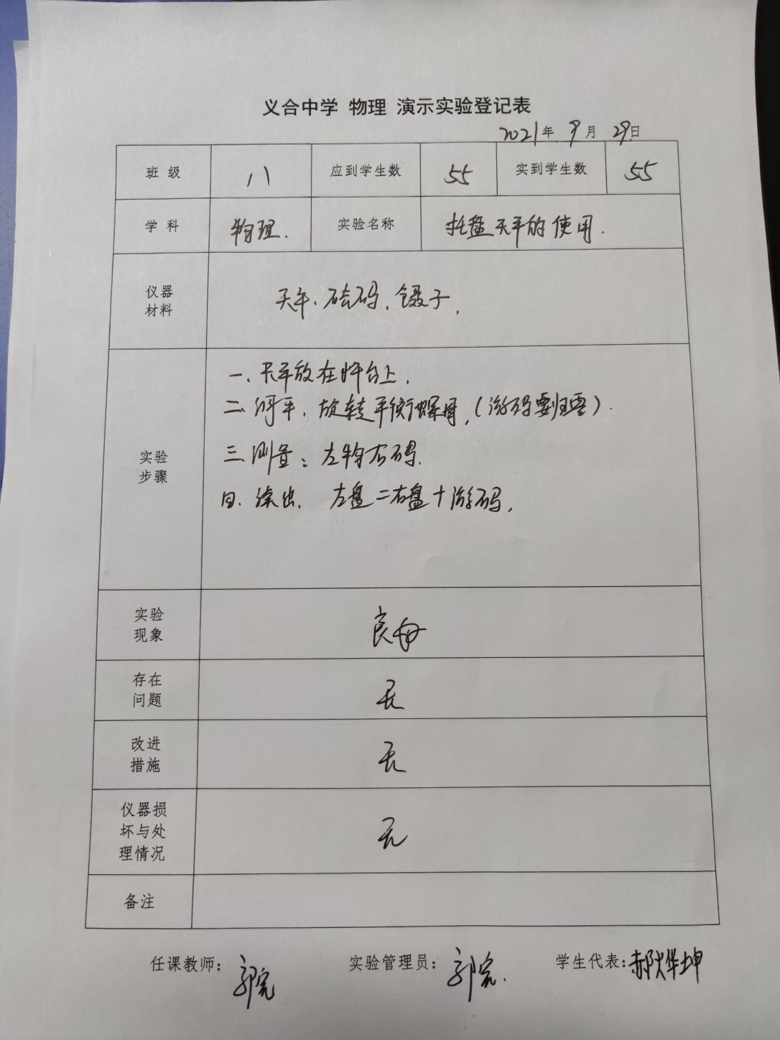 义合中学 物理 演示实验登记表
2021年 9月 29日
班 级 八 应到学生数 55 实到学生数 55
学 科 物理. 实验名称 托盘天平的使用.
仪器
材料
天平、砝码、镊子.
实验
步骤
一、天平放在水平台上.
二、调平. 旋转平衡螺母,(游码要归零).
三、测量:左物右码.
四、读出. 左盘=右盘+游码.
实验
现象
良好
存在
问题
无
改进
措施
无
仪器损
坏与处
理情况
无
备注
任课教师: 郭完 实验管理员: 郭完. 学生代表: 郝烨坤